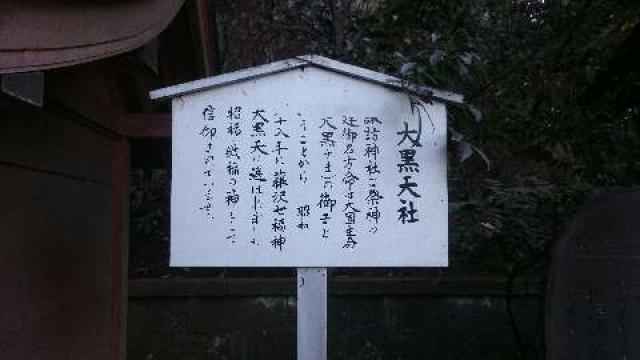 大黒天社
諏訪神社ご祭神の
建御名方命は大国主命
大黒さまの御子と
いうことから 昭和
八年に藤沢七福神
大黒天に選ばれました
招福 財福の神として
信仰されています。